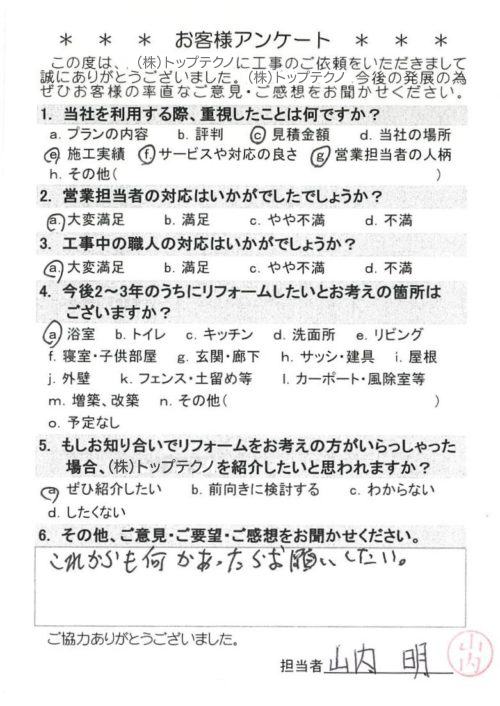 ＊ ＊ ＊ お客様アンケート ＊ ＊ ＊
この度は、(株)トップテクノに工事のご依頼をいただきまして
誠にありがとうございました。(株)トップテクノ 今後の発展の為
ぜひお客様の率直なご意見・ご感想をお聞かせください。
1. 当社を利用する際、重視したことは何ですか？
a. プランの内容 b. 評判 c 見積金額 d. 当社の場所
e. 施工実績 f. サービスや対応の良さ g 営業担当者の人柄
h. その他( )
2. 営業担当者の対応はいかがでしたでしょうか？
a. 大変満足 b. 満足 c. やや不満 d. 不満
3. 工事中の職人の対応はいかがでしょうか？
a. 大変満足 b. 満足 c. やや不満 d. 不満
4. 今後2〜3年のうちにリフォームしたいとお考えの箇所は
ございますか？
a 浴室 b. トイレ c. キッチン d. 洗面所 e. リビング
f. 寝室・子供部屋 g. 玄関・廊下 h. サッシ・建具 i. 屋根
j. 外壁 k. フェンス・土留め等 l. カーポート・風除室等
m. 増築、改築 n. その他( )
o. 予定なし
5. もしお知り合いでリフォームをお考えの方がいらっしゃった
場合、(株)トップテクノを紹介したいと思われますか？
a ぜひ紹介したい b. 前向きに検討する c. わからない
d. したくない
6. その他、ご意見・ご要望・ご感想をお聞かせください。
これからも何かあったらお願いしたい。
ご協力ありがとうございました。
担当者 山内 明
山内